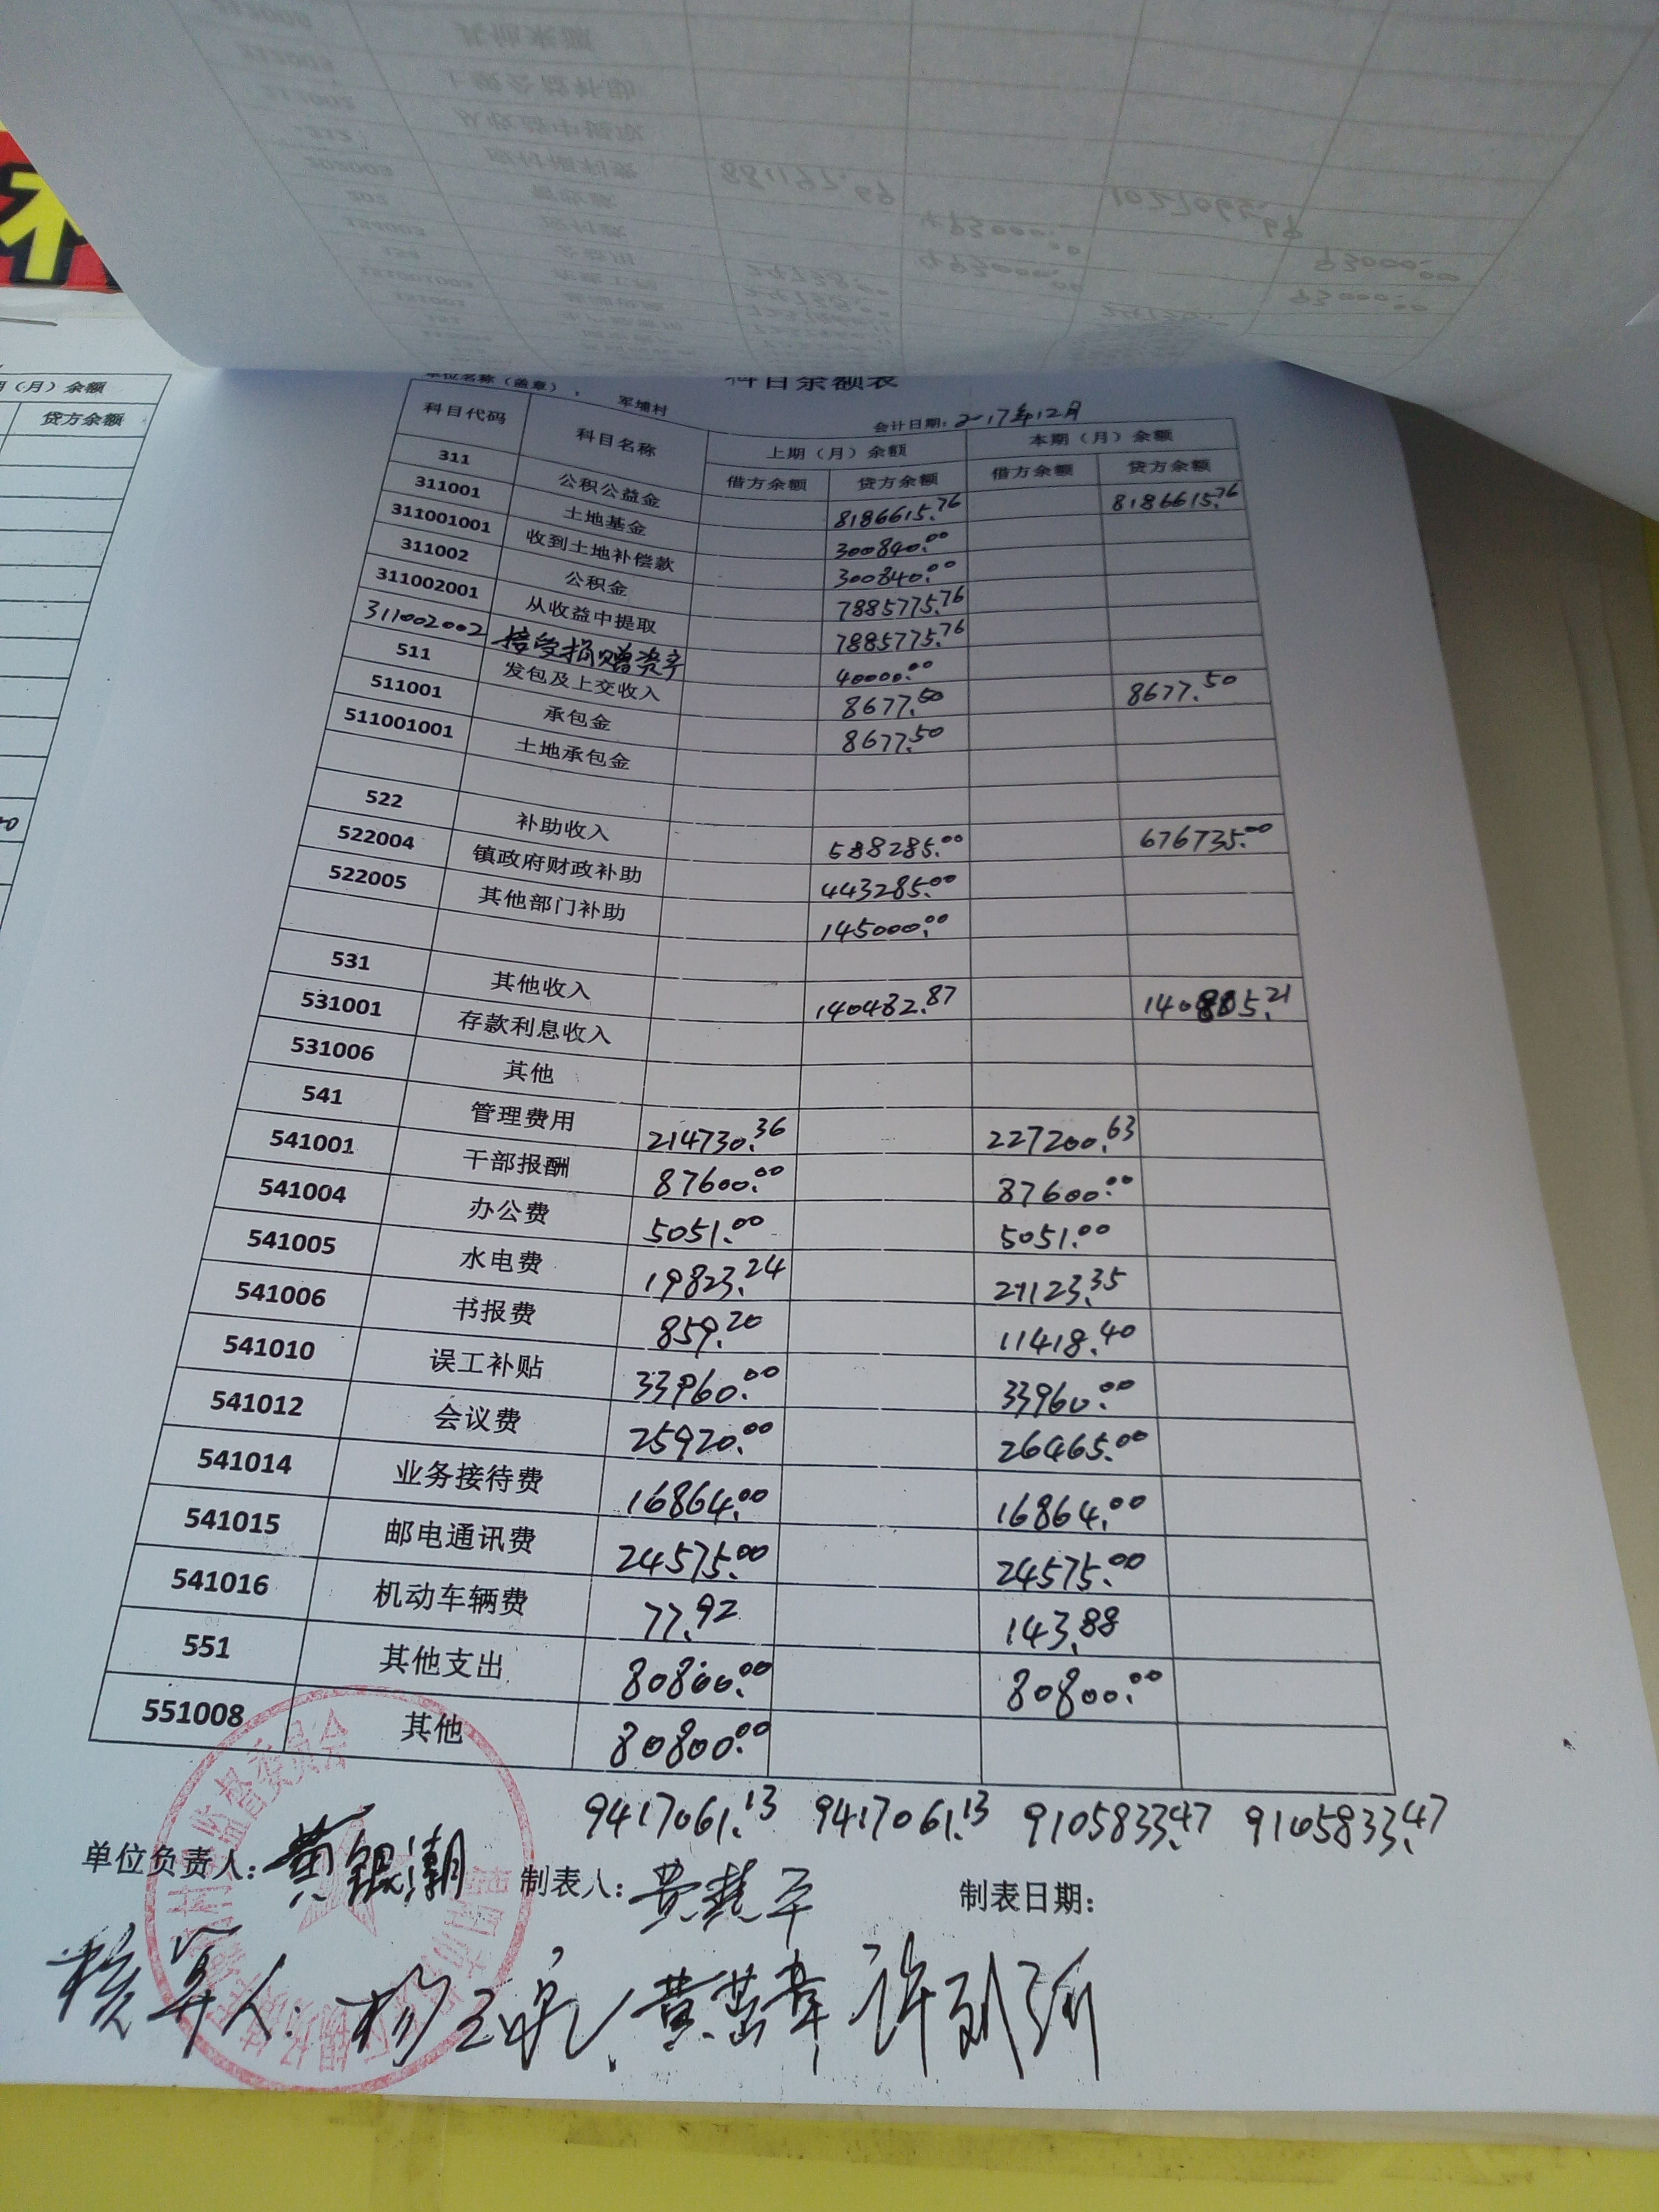 科目余额表
单位名称（盖章）， 军埔村 会计日期：2017年12月
科目代码 科目名称 上期（月）余额 本期（月）余额
借方余额 贷方余额 借方余额 贷方余额
311 公积公益金 8186615.76 8186615.76
311001 土地基金 300840.00
311001001 收到土地补偿款 300840.00
311002 公积金 7885775.76
311002001 从收益中提取 7885775.76
311002002 接受捐赠资产 40000.00
511 发包及上交收入 8677.50 8677.50
511001 承包金 8677.50
511001001 土地承包金
522 补助收入 588285.00 676735.00
522004 镇政府财政补助 443285.00
522005 其他部门补助 145000.00
531 其他收入 140482.87 140885.21
531001 存款利息收入
531006 其他
541 管理费用 214730.36 227200.63
541001 干部报酬 87600.00 87600.00
541004 办公费 5051.00 5051.00
541005 水电费 19823.24 21123.35
541006 书报费 859.20 11418.40
541010 误工补贴 33960.00 33960.00
541012 会议费 25920.00 26465.00
541014 业务接待费 16864.00 16864.00
541015 邮电通讯费 24575.00 24575.00
541016 机动车辆费 77.92 143.88
551 其他支出 80800.00 80800.00
551008 其他 80800.00
9417061.13 9417061.13 9105833.47 9105833.47
单位负责人：黄银潮 制表人： 制表日期：
核算人：
（月）余额
贷方余额
监督委员会